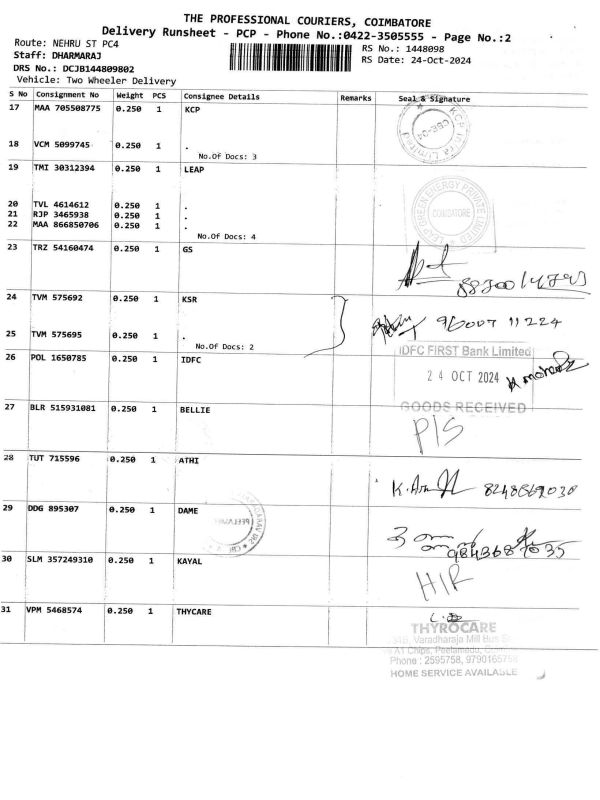 THE PROFESSIONAL COURIERS, COIMBATORE
Delivery Runsheet - PCP - Phone No.:0422-3505555 - Page No.:2
Route: NEHRU ST PC4
RS No.: 1448098
Staff: DHARMARAJ
RS Date: 24-Oct-2024
DRS No.: DCJB144809802
Vehicle: Two Wheeler Delivery
S No Consignment No Weight PCS Consignee Details Remarks Seal & Signature
17 MAA 705508775 0.250 1 KCP
18 VCM 5099745 0.250 1 .
No.Of Docs: 3
19 TMI 30312394 0.250 1 LEAP
20 TVL 4614612 0.250 1 .
21 RJP 3465938 0.250 1 .
22 MAA 866850706 0.250 1 .
No.Of Docs: 4
LEAP GREEN ENERGY PRIVATE LIMITED
COIMBATORE
23 TRZ 54160474 0.250 1 GS
24 TVM 575692 0.250 1 KSR
96007 11224
25 TVM 575695 0.250 1 .
No.Of Docs: 2
26 POL 1650785 0.250 1 IDFC
IDFC FIRST Bank Limited
24 OCT 2024
GOODS RECEIVED
27 BLR 515931081 0.250 1 BELLIE
P/S
28 TUT 715596 0.250 1 ATHI
29 DDG 895307 0.250 1 DAME
30 SLM 357249310 0.250 1 KAYAL
H/R
31 VPM 5468574 0.250 1 THYCARE
THYROCARE
Varadharaja Mill Bus
A1 Chips, Peelamedu,
Phone : 2595758, 9790165758
HOME SERVICE AVAILABLE